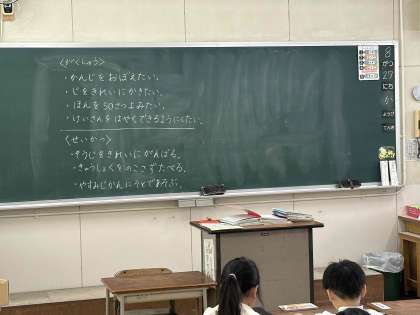 〈がくしゅう〉
・かんじをおぼえたい。
・じをきれいにかきたい。
・ほんを50さつよみたい。
・けいさんをはやくできるようにしたい。
〈せいかつ〉
・そうじをきれいにがんばる。
・きゅうしょくをのこさずたべる。
・やすみじかんにそとであそぶ。
8
がつ
27
にち
か
ようび
てんき